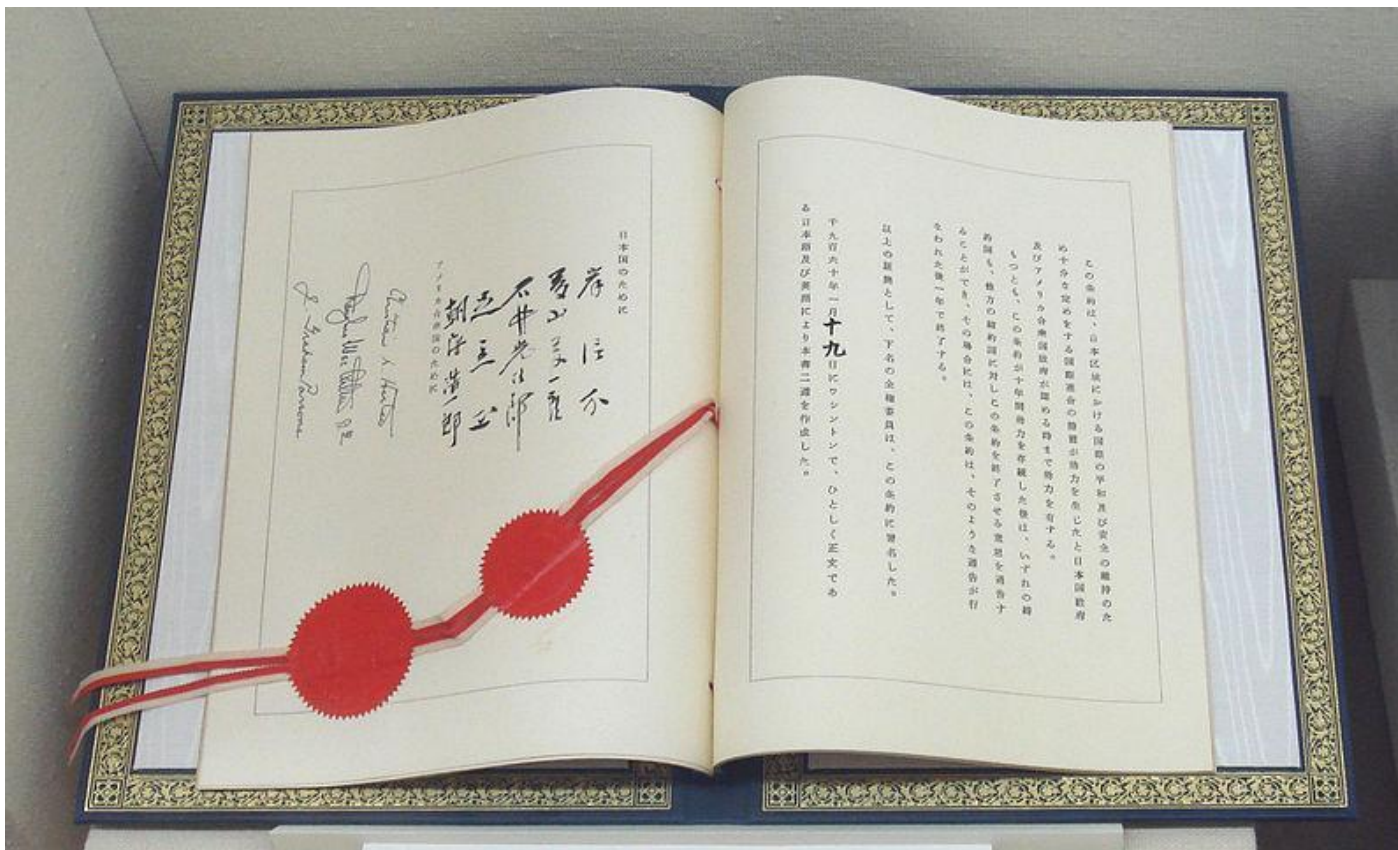 この条約は、日本区域における国際の平和及び安全の維持のた
め十分な定めをする国際連合の措置が効力を生じたと日本国政府
及びアメリカ合衆国政府が認める時まで効力を有する。
もつとも、この条約が十年間効力を存続した後は、いずれの締
約国も、他方の締約国に対しこの条約を終了させる意思を通告す
ることができ、その場合には、この条約は、そのような通告が行
なわれた後一年で終了する。
以上の証拠として、下名の全権委員は、この条約に署名した。
千九百六十年一月十九日にワシントンで、ひとしく正文であ
る日本語及び英語により本書二通を作成した。
日本国のために
岸信介
藤山愛一郎
石井光次郎
足立正
朝海浩一郎
アメリカ合衆国のために
Christian A Herter
Douglas MacArthur 2nd
J. Graham Parsons